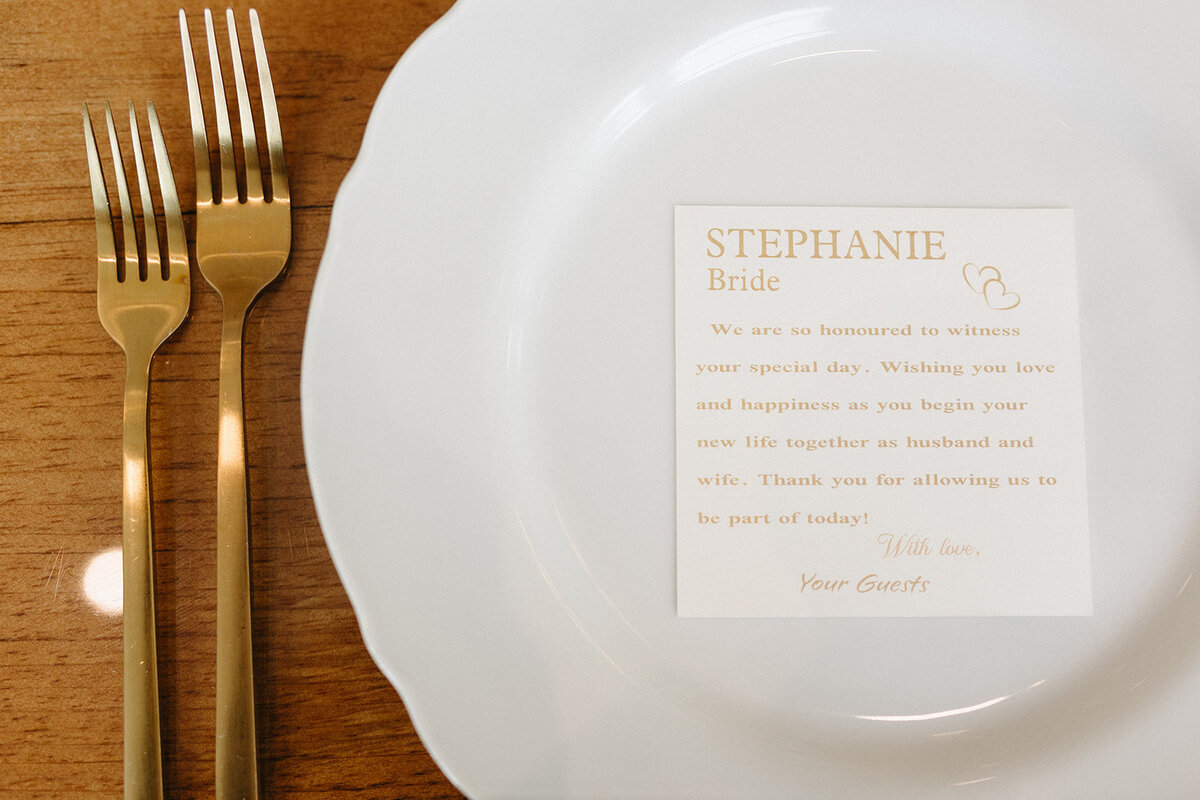 STEPHANIE
Bride
We are so honoured to witness
your special day. Wishing you love
and happiness as you begin your
new life together as husband and
wife. Thank you for allowing us to
be part of today!
With love,
Your Guests